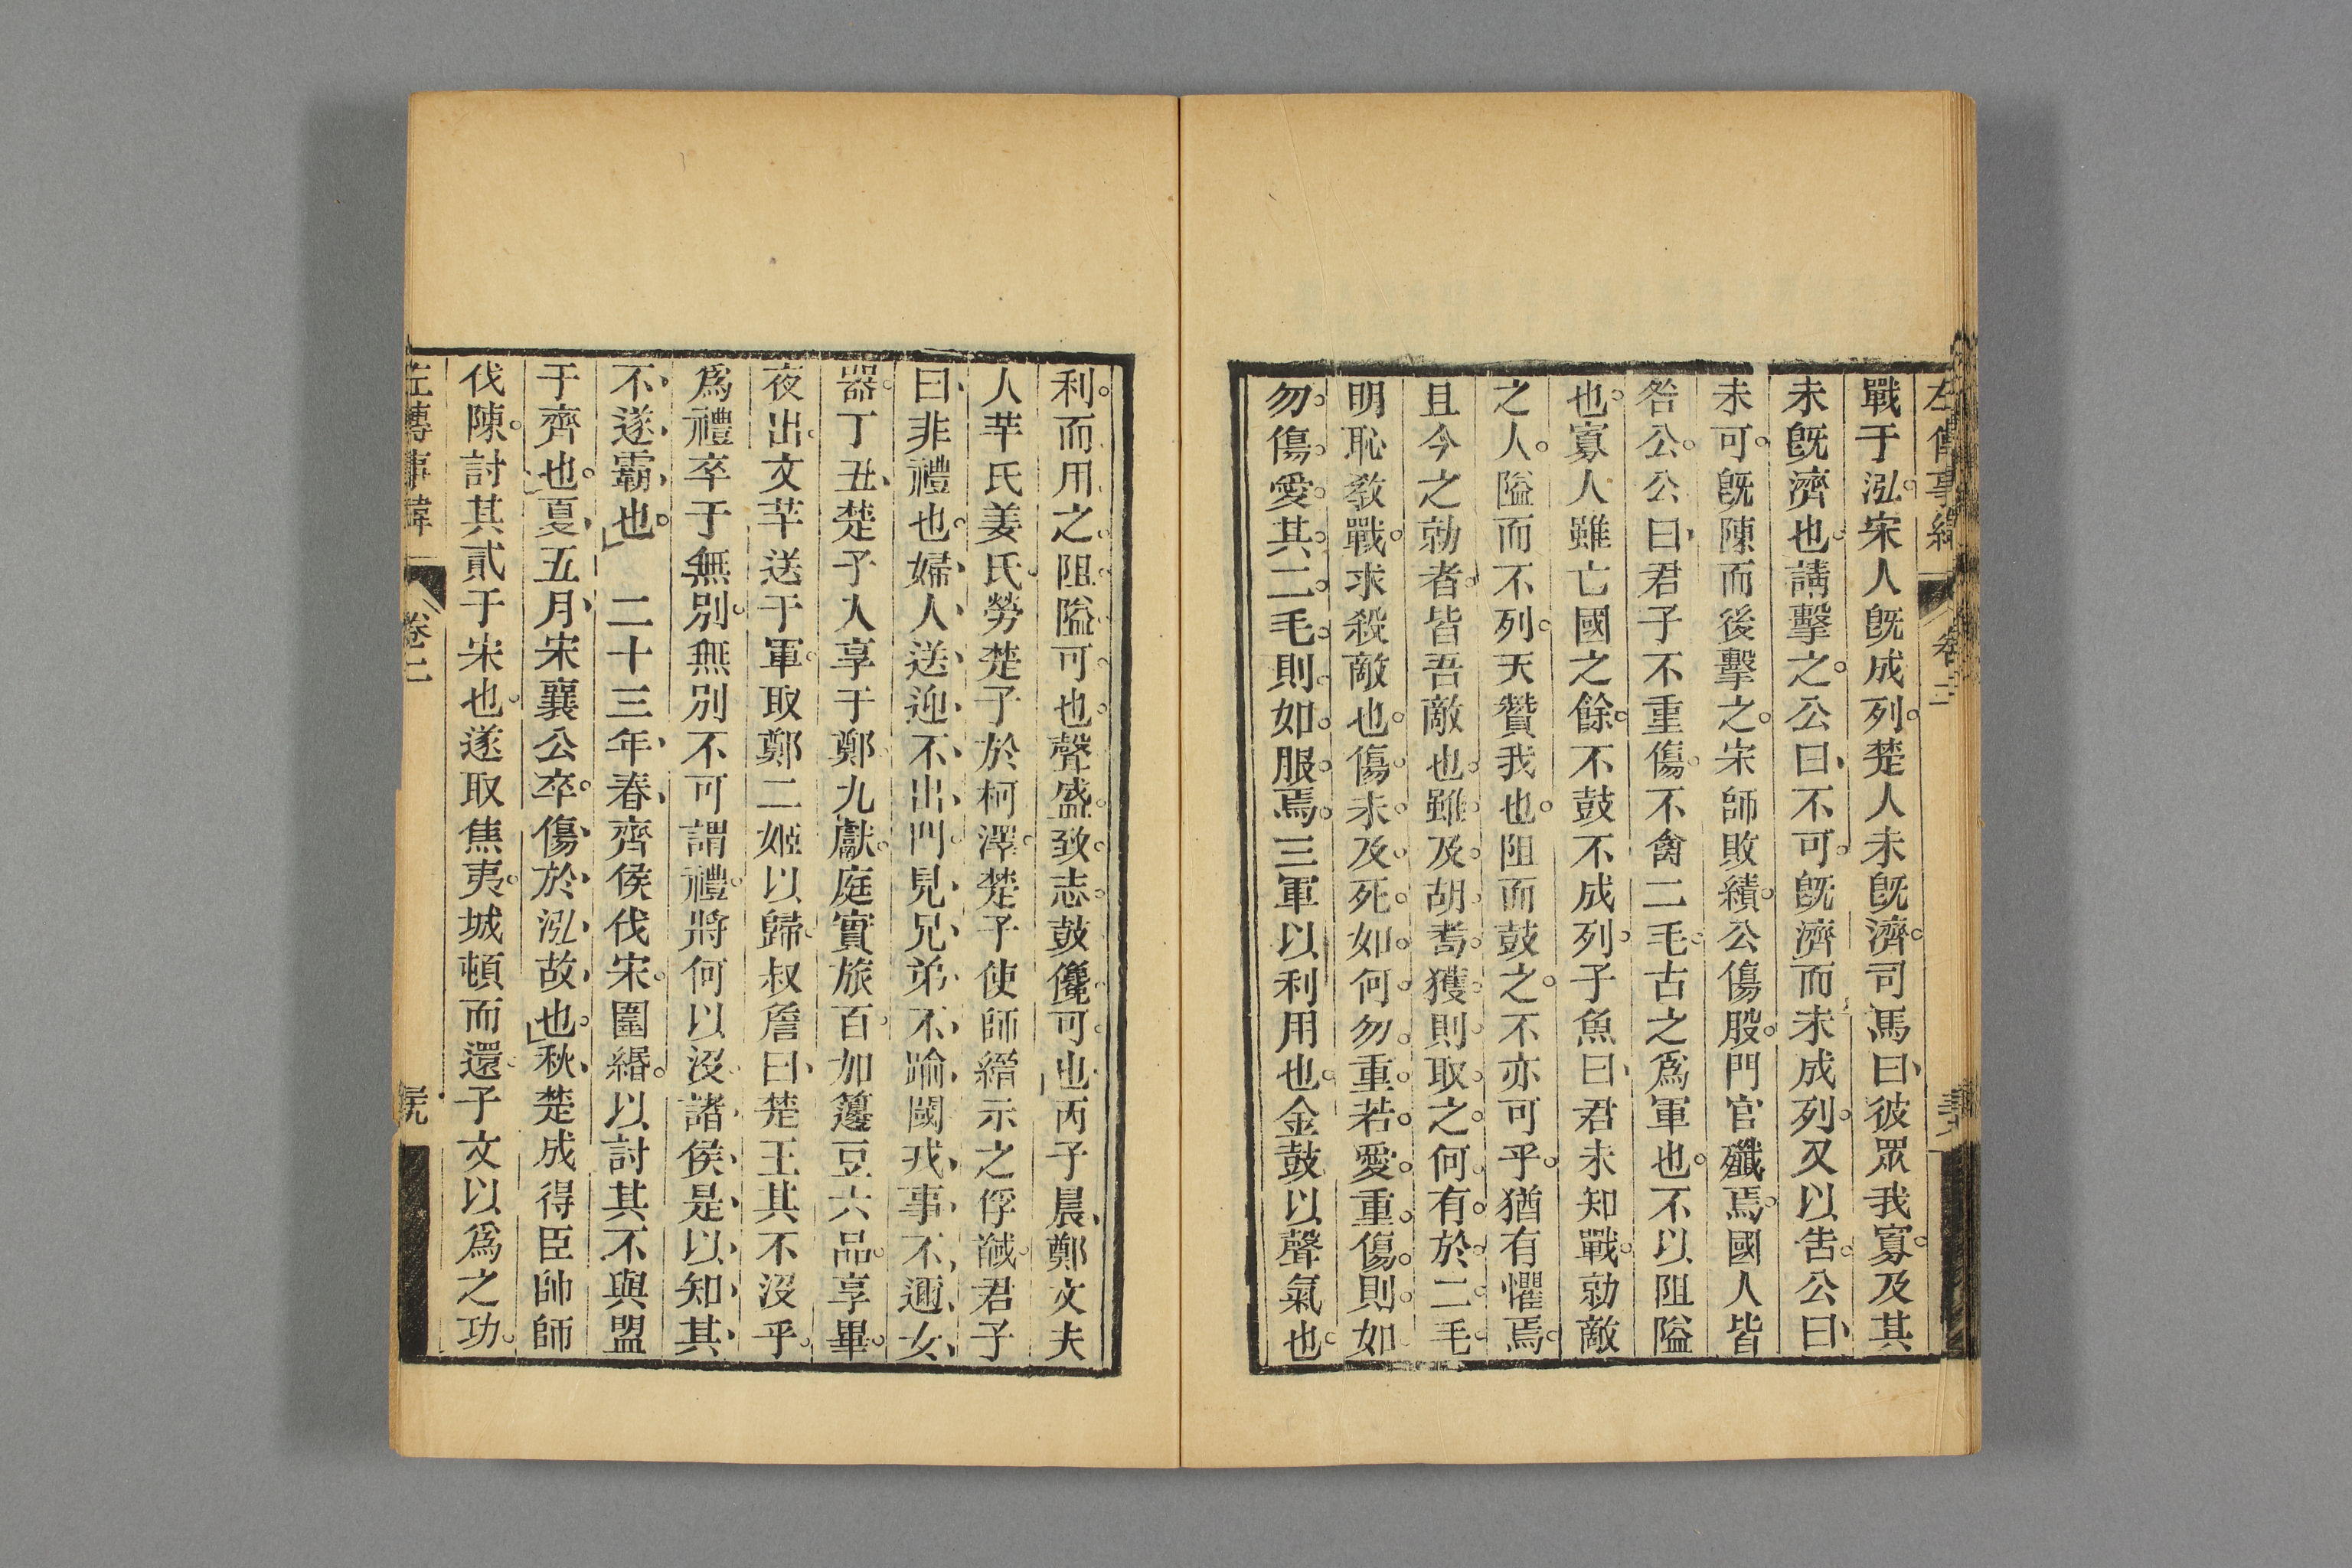 左傳事緯
卷二
戰于泓宋人旣成列楚人未旣濟司馬曰彼眾我寡及其
未旣濟也請擊之公曰不可旣濟而未成列又以告公曰
未可旣陳而後擊之宋師敗績公傷股門官殲焉國人皆
咎公公曰君子不重傷不禽二毛古之爲軍也不以阻隘
也寡人雖亡國之餘不鼓不成列子魚曰君未知戰勍敵
之人隘而不列天贊我也阻而鼓之不亦可乎猶有懼焉
且今之勍者皆吾敵也雖及胡耇獲則取之何有於二毛
明恥敎戰求殺敵也傷未及死如何勿重若愛重傷則如
勿傷愛其二毛則如服焉三軍以利用也金鼓以聲氣也
利而用之阻隘可也聲盛致志鼓儳可也丙子晨鄭文夫
人芈氏姜氏勞楚子於柯澤楚子使師縉示之俘馘君子
曰非禮也婦人送迎不出門見兄弟不踰閾戎事不邇女
器丁丑楚子入享于鄭九獻庭實旅百加籩豆六品享畢
夜出文芈送于軍取鄭二姬以歸叔詹曰楚王其不沒乎
爲禮卒于無別無別不可謂禮將何以沒諸侯是以知其
不遂霸也 二十三年春齊侯伐宋圍緡以討其不與盟
于齊也夏五月宋襄公卒傷於泓故也秋楚成得臣帥師
伐陳討其貳于宋也遂取焦夷城頓而還子文以爲之功
左傳事緯
卷二